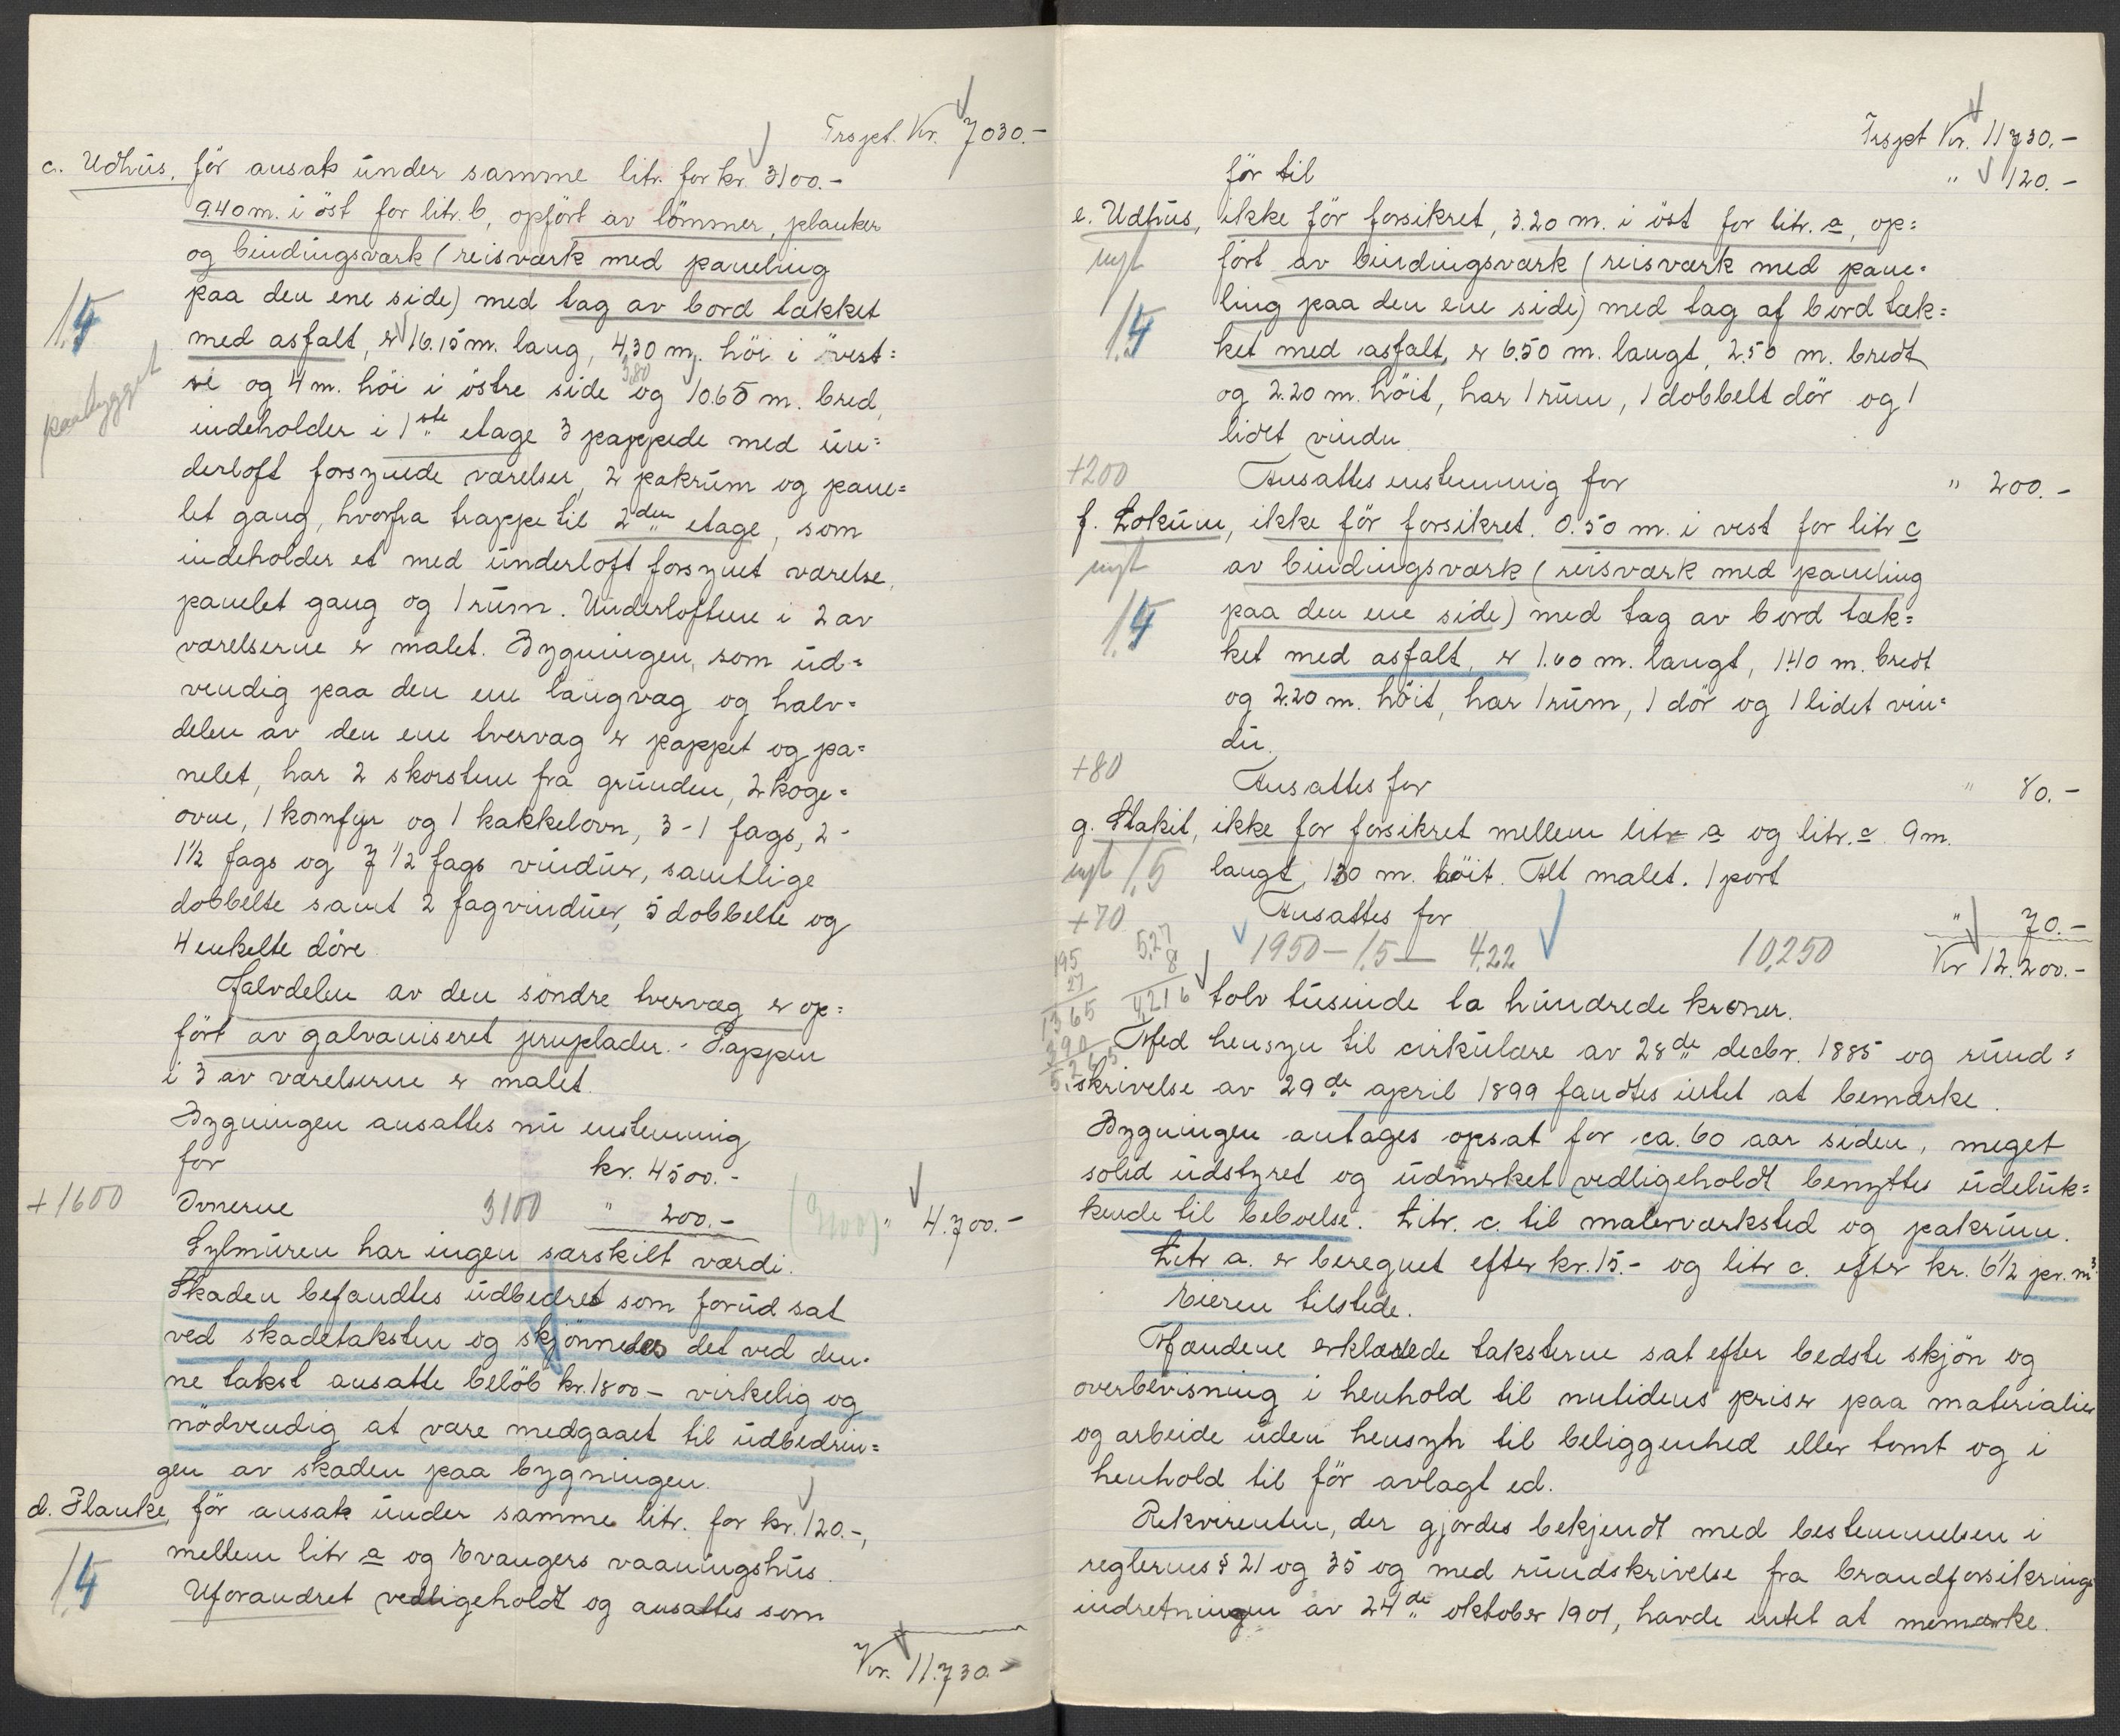 Trspt. Kr. 7030.-
c. Udhus, för ansat under samme litr. for kr. 3100.-
9.40 m. i öst for litr. b, opfört av tömmer, planker
og bindingsværk (reisværk med paneling
paa den ene side) med tag av bord tækket
1.5
med asfalt, er 16.15 m. lang, 4.30 m. höi i vest:
paabygget
re og 4 m. höi i östre side og 10.65 m. bred,
3.80
indeholder i 1ste etage 3 pappede med un=
derloft forsynede værelser, 2 pakrum og pane=
let gang, hvorfra trappe til 2den etage, som
indeholder et med underloft forsynet værelse,
panelet gang og 1 rum. Underloftene i 2 av
værelserne er malet. Bygningen, som ud=
vendig paa den ene langvæg og halv=
delen av den ene tvervæg er pappet og pa=
nelet, har 2 skorstene fra grunden, 2 koge=
ovne, 1 komfyr og 1 kakkelovn, 3 - 1 fags, 2 -
1½ fags og 7 ½ fags vinduer, samtlige
dobbelte samt 2 fagvinduer, 5 dobbelte og
4 enkelte döre.
Halvdelen av den söndre tvervæg er op=
fört av galvaniseret jernplader. - Pappen
i 3 av værelserne er malet.
Bygningen ansattes nu enstemmig
for kr. 4500.-
+1600 Ovnerne 3100 " 200.- " 4.700.-
Sylmuren har ingen særskilt værdi.
Skaden befandtes udbedret som forud sat
ved skadetaksten og skjönnedes det ved den=
ne takst ansatte belöb kr. 1800 - virkelig og
nödvendig at være medgaaet til udbedrin=
gen av skaden paa bygningen.
d. Planke, för ansat under samme litr. for kr. 120.-,
mellem litr a og Evangers vaaningshus.
1.5
Uforandret vedligeholdt og ansattes som
Kr. 11.730.-
Trspt Kr. 11730.-
för til " 120.-
e. Udhus, ikke för forsikret, 3.20 m. i öst for litr. a, op=
nyt
fört av bindingsværk (reisværk med pane=
1.5
ling paa den ene side) med tag af bord tæk=
ket med asfalt, er 6.50 m. langt, 2.50 m. bredt
og 2.20 m. höit, har 1 rum, 1 dobbelt dör og 1
lidet vindu.
+200 Ansattes enstemmig for " 200.-
f. Lokum, ikke för forsikret. 0.50 m. i vest for litr c
nyt
av bindingsværk (reisværk med paneling
1.5
paa den ene side) med tag av bord tæk=
ket med asfalt, er 1.60 m. langt, 1.40 m. bredt
og 2.20 m. höit, har 1 rum, 1 dör og 1 lidet vin=
du.
+80 Ansattes for " 80.-
g. Stakit, ikke for forsikret mellem litr a og litr. c. 9 m.
nyt 1.5 langt, 1.30 m. höit. Alt malet. 1 port
+70 Ansattes for " 70.-
1950 - 1.5 - 4.22 10.250 Kr 12.200.-
5.27
8
4.216
195
27
1365
390
5.265
tolv tusinde to hundrede kroner.
Med hensyn til cirkulære av 28de decbr. 1885 og rund=
skrivelse av 29de april 1899 fandtes intet at bemærke.
Bygningen antages opsat for ca. 60 aar siden, meget
solid udstyret og udmerket vedligeholdt benyttes udeluk=
kende til beboelse. Litr. c. til malerværksted og pakrum.
Litr a. er beregnet efter kr. 15.- og litr c. efter kr. 6½ pr. m³.
Eieren tilstede.
Mændene erklærede taksterne sat efter bedste skjön og
overbevisning i henhold til nutidens priser paa materialier
og arbeide uden hensyn til beliggenhed eller tomt og i
henhold til för avlagt ed.
Rekvirenten, der gjordes bekjendt med bestemmelsen i
reglernes § 21 og 35 og med rundskrivelse fra brandforsikrings
indretningen av 24de oktober 1901, havde intet at memærke.